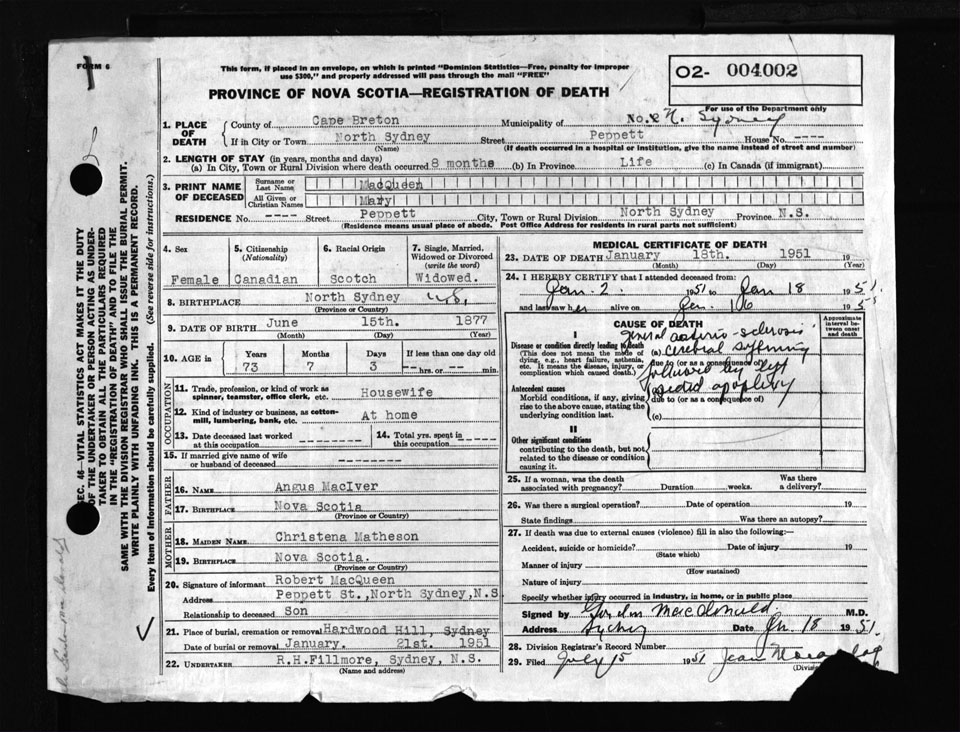 FORM 6
This form, if placed in an envelope, on which is printed "Dominion Statistics—Free, penalty for improper
use $300," and properly addressed will pass through the mail "FREE"
O2- 004002
PROVINCE OF NOVA SCOTIA—REGISTRATION OF DEATH
For use of the Department only
1. PLACE OF DEATH
County of Cape Breton Municipality of No. & N. Sydney
If in City or Town North Sydney Street Peppett House No. ----
(Name) (If death occurred in a hospital or institution, give the name instead of street and number)
2. LENGTH OF STAY (in years, months and days)
(a) In City, Town or Rural Division where death occurred 8 months (b) In Province Life (c) In Canada (if immigrant)
3. PRINT NAME OF DECEASED
Surname or Last Name MacQueen
All Given or Christian Names Mary
RESIDENCE No. ---- Street Peppett City, Town or Rural Division North Sydney Province N.S.
(Residence means usual place of abode. Post Office Address for residents in rural parts not sufficient)
4. Sex
Female
5. Citizenship
(Nationality)
Canadian
6. Racial Origin
Scotch
7. Single, Married,
Widowed or Divorced
(write the word)
Widowed.
8. BIRTHPLACE North Sydney N.S.
(Province or Country)
9. DATE OF BIRTH June 15th. 1877
(Month) (Day) (Year)
10. AGE in
Years Months Days If less than one day old
73 7 3 -- hrs. or -- min.
OCCUPATION
11. Trade, profession, or kind of work as
spinner, teamster, office clerk, etc. Housewife
12. Kind of industry or business, as cotton-
mill, lumbering, bank, etc. At home
13. Date deceased last worked
at this occupation --------
14. Total yrs. spent in
this occupation -----
15. If married give name of wife
or husband of deceased --------
FATHER
16. NAME Angus MacIver
17. BIRTHPLACE Nova Scotia
(Province or Country)
MOTHER
18. MAIDEN NAME Christena Matheson
19. BIRTHPLACE Nova Scotia.
(Province or Country)
20. Signature of informant Robert MacQueen
Address Peppett St.,North Sydney,N.S.
Relationship to deceased Son
21. Place of burial, cremation or removal Hardwood Hill, Sydney
Date of burial or removal January. 21st. 1951
22. UNDERTAKER R.H.Fillmore, Sydney, N.S.
(Name and address)
MEDICAL CERTIFICATE OF DEATH
23. DATE OF DEATH January 18th. 1951 19
(Month) (Day) (Year)
24. I HEREBY CERTIFY that I attended deceased from:
Jan. 2. 1951 to Jan 18 1951.
and last saw her alive on Jan. 16 195
CAUSE OF DEATH
Approximate
interval between
onset
and death
I
Disease or condition directly leading to death
(This does not mean the mode of
dying, e.g., heart failure, asthenia,
etc. It means the disease, injury, or
complication which caused death.)
general arterio-sclerosis
(a) cerebral
due to (or as a consequence of)
followed by left
sided apoplexy
Antecedent causes
Morbid conditions, if any, giving
rise to the above cause, stating the
underlying condition last.
due to (or as a consequence of)
(c)
II
Other significant conditions
contributing to the death, but not
related to the disease or condition
causing it.
25. If a woman, was the death
associated with pregnancy? Duration weeks. Was there
a delivery?
26. Was there a surgical operation? Date of operation 19
State findings Was there an autopsy?
27. If death was due to external causes (violence) fill in also the following:—
Accident, suicide or homicide? Date of injury 19
(State which)
Manner of injury
(How sustained)
Nature of injury
Specify whether injury occurred in industry, in home, or in public place
Signed by Gordon MacDonald. M.D.
Address Sydney Date Jan 18 1951.
28. Division Registrar's Record Number
29. Filed July 5 1951 Jean
SEC. 46 VITAL STATISTICS ACT MAKES IT THE DUTY
OF THE UNDERTAKER OR PERSON ACTING AS UNDER-
TAKER TO OBTAIN ALL THE PARTICULARS REQUIRED
IN THE "REGISTRATION OF DEATH" AND TO FILE THE
SAME WITH THE DIVISION REGISTRAR WHO SHALL ISSUE THE BURIAL PERMIT.
WRITE PLAINLY WITH UNFADING INK. THIS IS A PERMANENT RECORD.
Every item of Information should be carefully supplied. (See reverse side for instructions.)